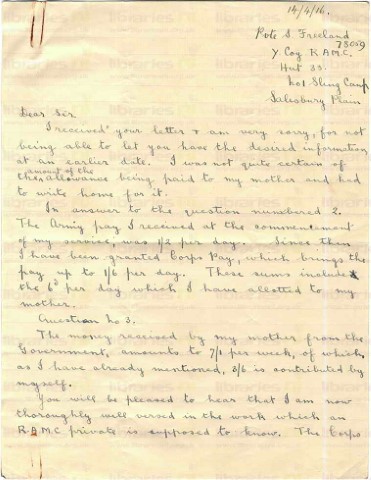 14/4/16.
Pote S. Freeland
73009
Y Coy R.A.M.C.
Hut 33.
No1 Sling Camp
Salesbury Plain
Dear Sir
I received your letter & am very sorry, for not
being able to let you have the desired information
at an earlier date. I was not quite certain of
amount of the
the allowance being paid to my mother and had
to write home for it.
In answer to the question numbered 2.
The Army pay I received at the commencement
of my service, was 1/2 per day. Since then
I have been granted Corps Pay, which brings the
pay up to 1/6 per day. These sums include
the 6d per day which I have allotted to my
mother.
Question No 3.
The money received by my mother from the
Government, amounts to 7/1 per week, of which,
as I have already mentioned, 3/6 is contributed by
myself.
You will be pleased to hear that I am now
thoroughly well versed in the work which an
R.A.M.C private is supposed to know. The Corps